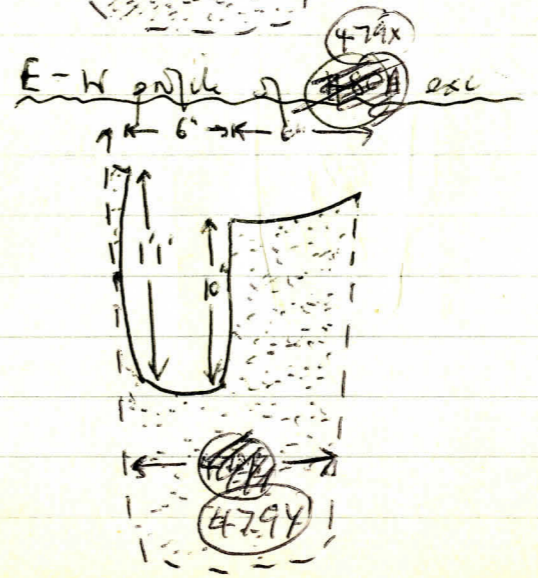 479X
E-W profile of exc
6"
1'1"
10"
479Y